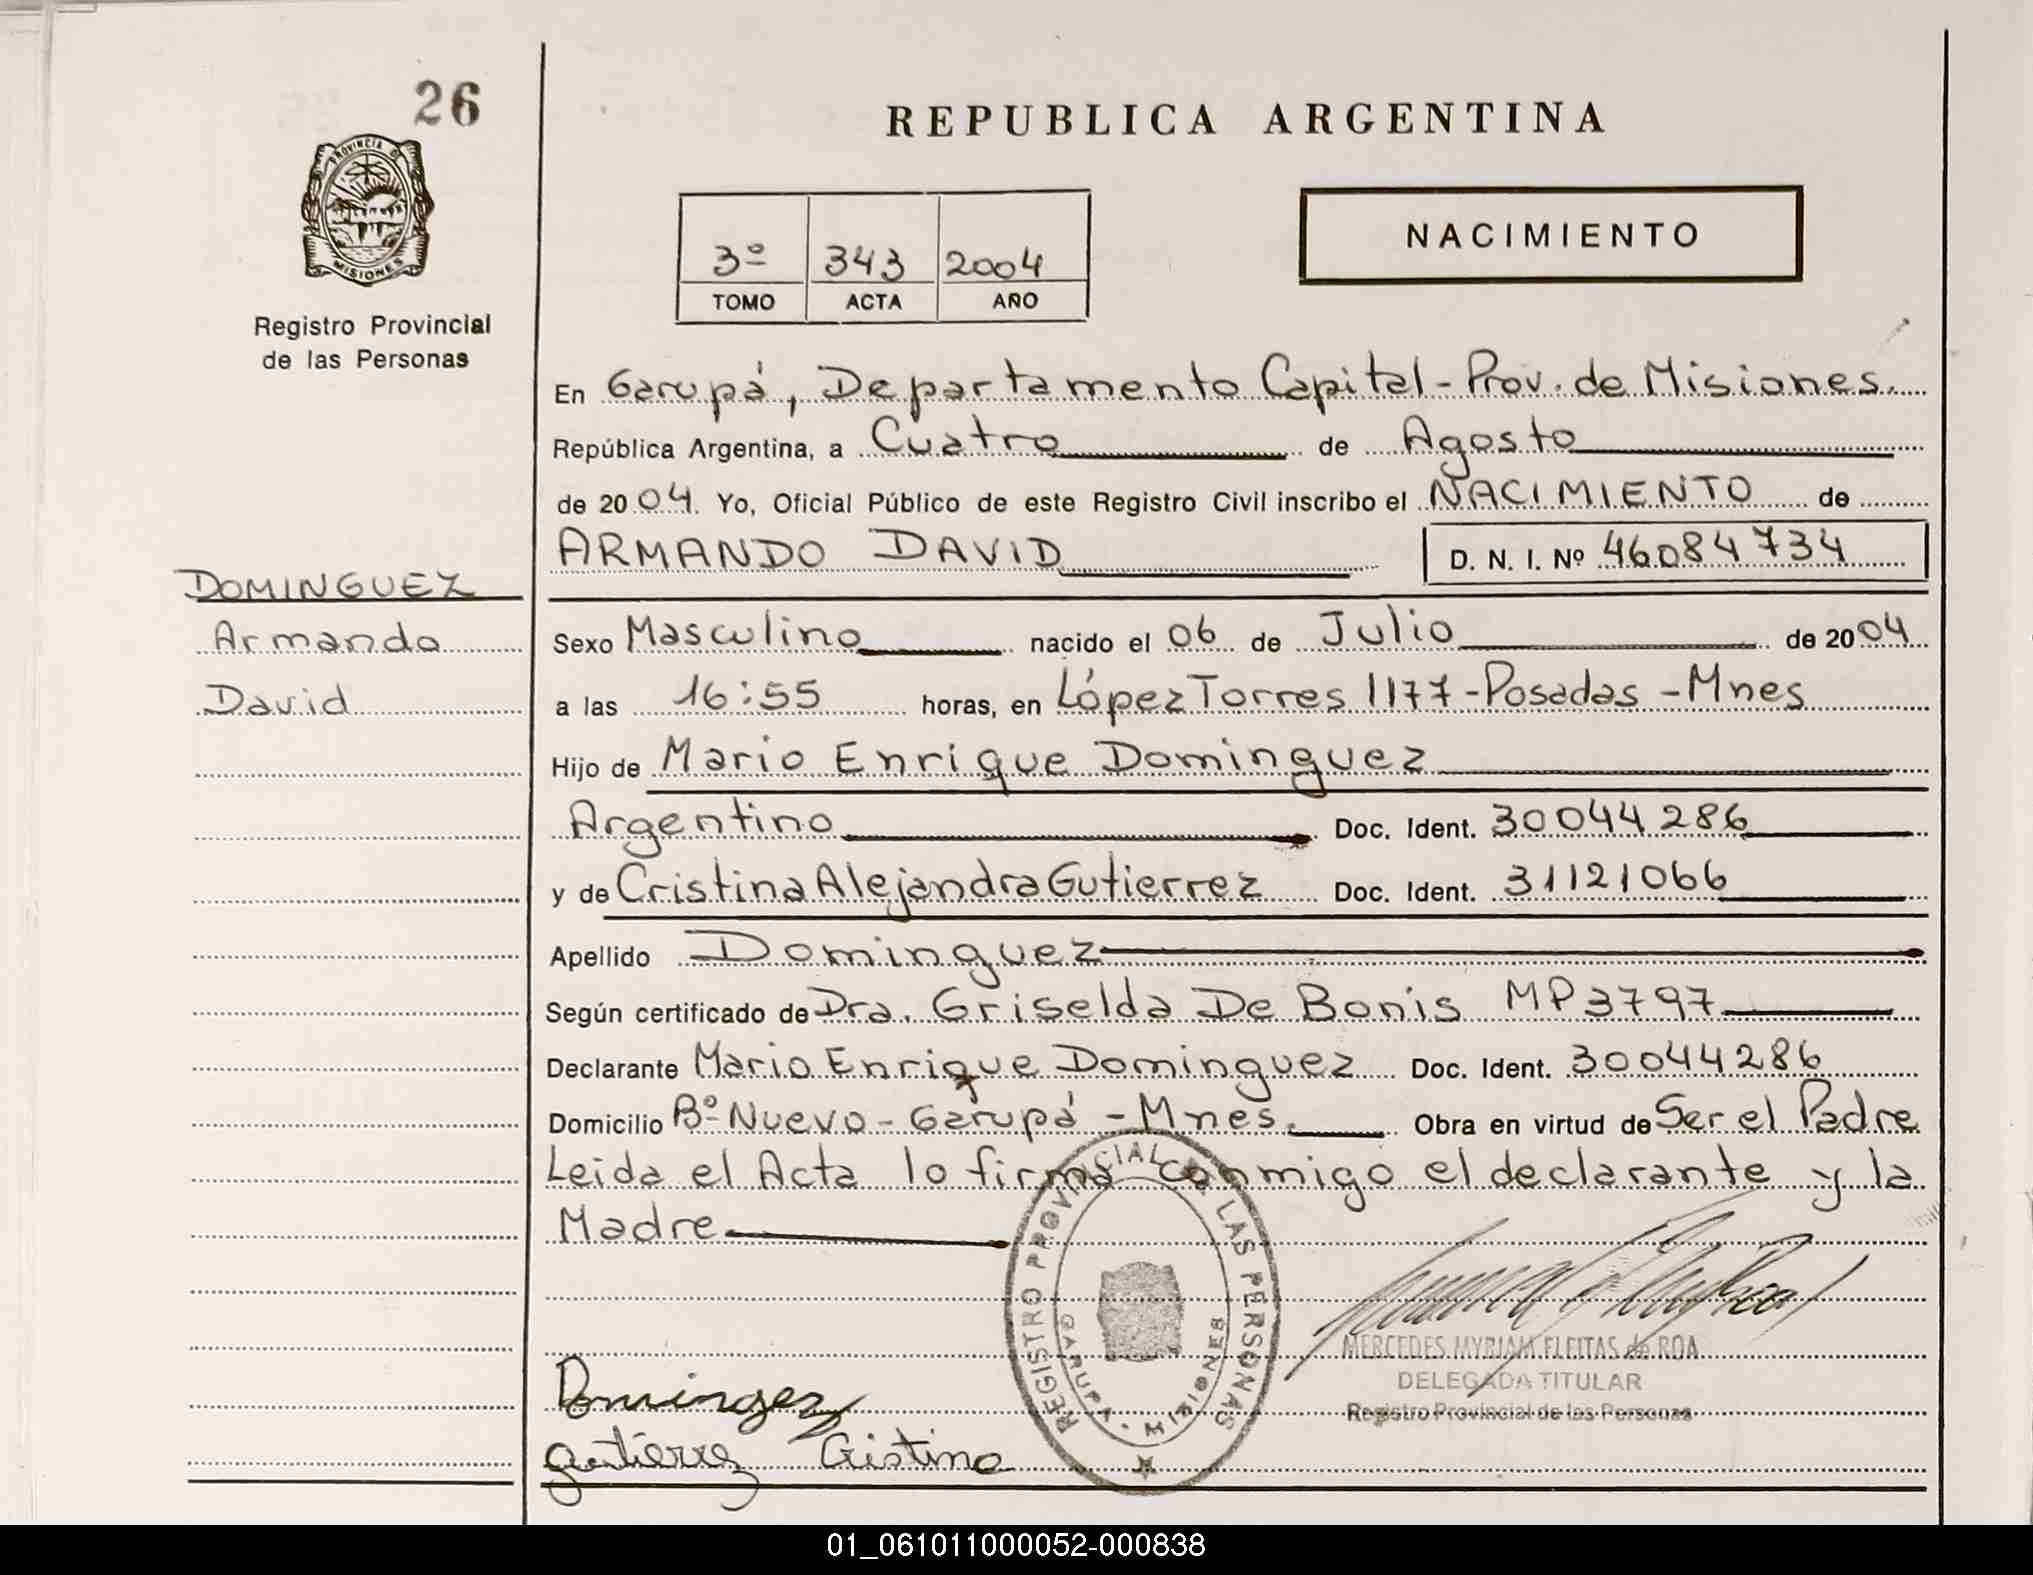 26
PROVINCIA DE
MISIONES
Registro Provincial
de las Personas
REPUBLICA ARGENTINA
3º 343 2004
TOMO ACTA AÑO
NACIMIENTO
En Garupá, Departamento Capital - Prov. de Misiones.
República Argentina, a Cuatro de Agosto
de 2004. Yo, Oficial Público de este Registro Civil inscribo el NACIMIENTO de
ARMANDO DAVID D. N. I. Nº 46084734
DOMINGUEZ
Armando
David
Sexo Masculino nacido el 06 de Julio de 2004
a las 16:55 horas, en López Torres 1177 - Posadas - Mnes
Hijo de Mario Enrique Dominguez
Argentino Doc. Ident. 30044286
y de Cristina Alejandra Gutierrez Doc. Ident. 31121066
Apellido Dominguez
Según certificado de Dra. Griselda De Bonis MP3797
Declarante Mario Enrique Dominguez Doc. Ident. 30044286
Domicilio Bº Nuevo - Garupá - Mnes. Obra en virtud de Ser el Padre
Leida el Acta lo firma conmigo el declarante y la
Madre
REGISTRO PROVINCIAL DE LAS PERSONAS
GARUPA - MISIONES
MERCEDES MYRIAM FLEITAS de ROA
DELEGADA TITULAR
Registro Provincial de las Personas
Dominguez
Gutierrez Cristina
01_061011000052-000838